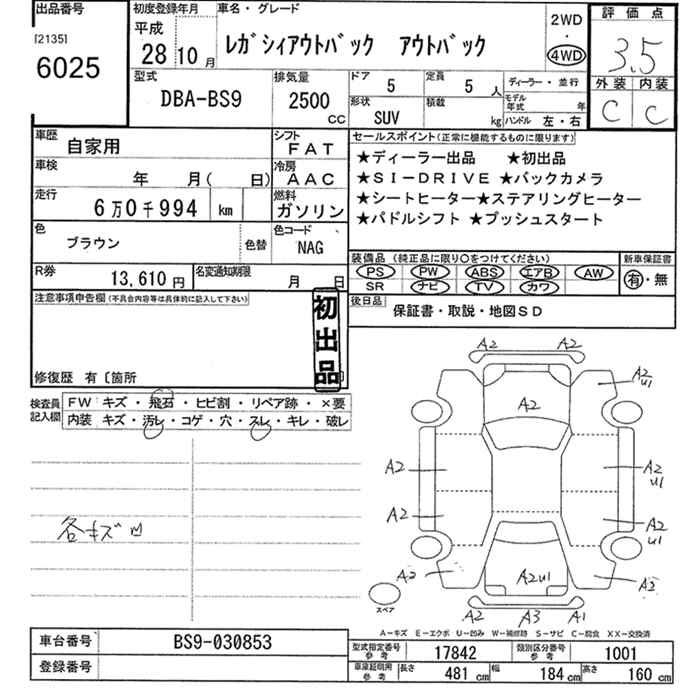 出品番号
[2135]
6025
初度登録年月
平成
28 10 月
車名・グレード
レガシィアウトバック アウトバック
2WD
・
4WD
評価点
3.5
外装 内装
C C
型式
DBA-BS9
排気量
2500 CC
ドア 5
定員 5 人
ディーラー・並行
形状 SUV
積載 kg
モデル年式 年
ハンドル 左・右
車歴 自家用
シフト FAT
車検 年 月( 日)
冷房 AAC
走行 6万0千994 km
燃料 ガソリン
色 ブラウン 色替
色コード NAG
R券 13,610円
名変通知期限 月 日
セールスポイント(正常に機能するものに限ります)
★ディーラー出品 ★初出品
★SI-DRIVE ★バックカメラ
★シートヒーター★ステアリングヒーター
★パドルシフト ★プッシュスタート
装備品 (純正品に限り○をつけてください)
PS PW ABS エアB AW
SR ナビ TV カワ
新車保証書
有・無
後日品
保証書・取説・地図SD
注意事項申告欄(不具合内容等は具体的に記入して下さい)
初出品
修復歴 有〔箇所
検査員記入欄
FW キズ・飛石・ヒビ割・リペア跡・×要
内装 キズ・汚レ・コゲ・穴・スレ・キレ・破レ
各キズ凹
A2 A2
A2
A2
U1
A2
A2
U1
A2
A2
U1
A2
A2
A2U1
A2
A2 A3 A1
スペア
A-キズ E-エクボ U-凹み W-補修跡 S-サビ C-腐食 XX-交換済
車台番号 BS9-030853
登録番号
型式指定番号 参考 17842
類別区分番号 参考 1001
車庫証明用 参考 長さ 481 cm 幅 184 cm 高さ 160 cm